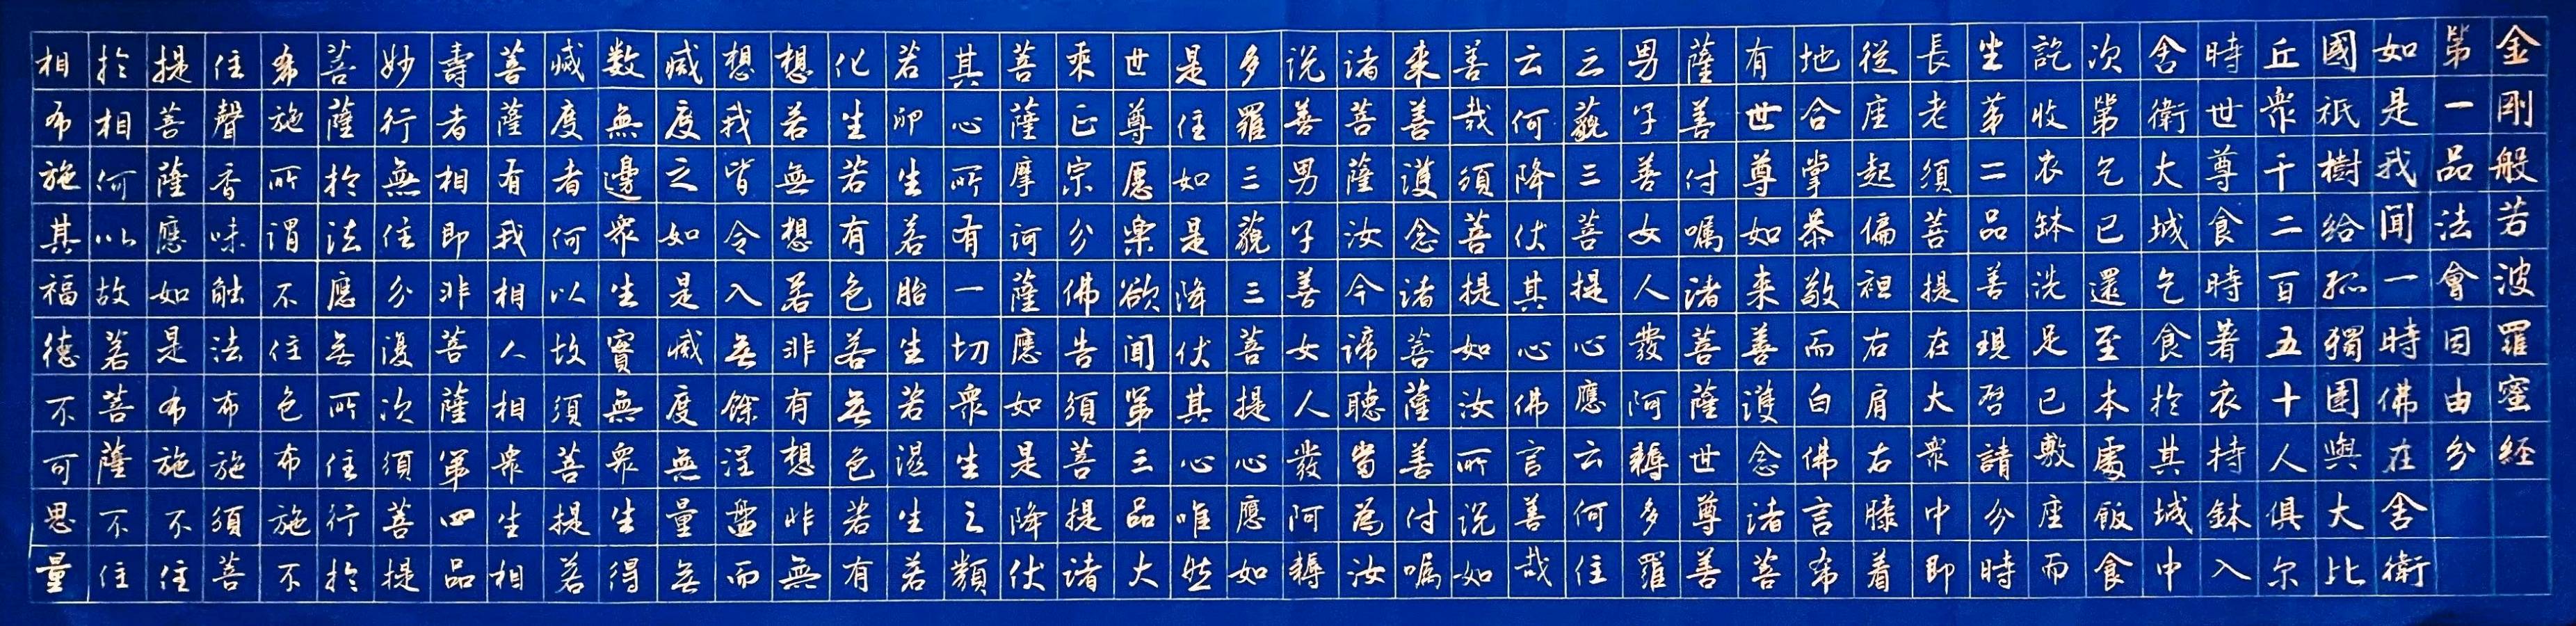 金剛般若波羅蜜経
第一品法會因由分
如是我闻一時佛在舍衛
國祇樹给孤獨園與大比
丘眾千二百五十人俱尔
時世尊食時著衣持鉢入
舍衛大城乞食於其城中
次第乞已還至本處飯食
訖收衣缽洗足已敷座而
坐第二品善現啓請分時
長老須菩提在大眾中即
從座起偏袒右肩右膝着
地合掌恭敬而白佛言希
有世尊如来善護念諸菩
薩善付嘱诸菩薩世尊善
男子善女人發阿耨多羅
三藐三菩提心應云何住
云何降伏其心佛言善哉
善哉須菩提如汝所说如
来善護念诸菩薩善付嘱
诸菩薩汝今諦聽當為汝
说善男子善女人發阿耨
多羅三藐三菩提心應如
是住如是降伏其心唯然
世尊愿樂欲闻第三品大
乘正宗分佛告須菩提诸
菩薩摩诃薩應如是降伏
其心所有一切眾生之類
若卵生若胎生若湿生若
化生若有色若無色若有
想若無想若非有想非無
想我皆令入無餘涅盤而
滅度之如是滅度無量無
数無邊眾生實無眾生得
滅度者何以故須菩提若
菩薩有我相人相眾生相
壽者相即非菩薩第四品
妙行無住分復次須菩提
菩薩於法應無所住行於
布施所謂不住色布施不
住聲香味触法布施須菩
提菩薩應如是布施不住
於相何以故若菩薩不住
相布施其福德不可思量